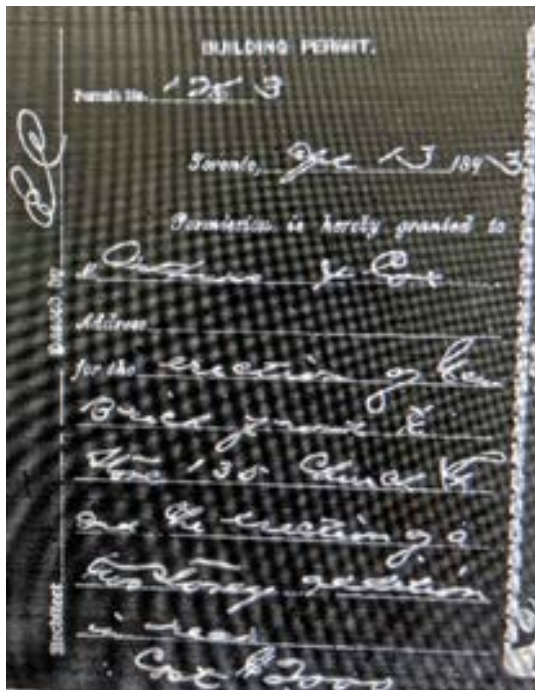 BUILDING PERMIT.
Permit No. 125 3
Toronto, Apl 13 1893
Permission is hereby granted to
Cox
Address
for the erection of
Brick front
Store 135 Church St
and the erection of a
two storey addition
in rear
Cost $2000
Passed by
Architect